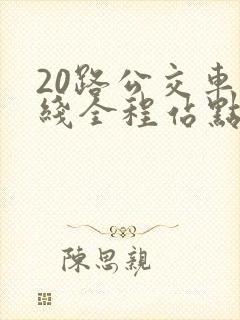 20路公交車
綫全程佔點
陳思親